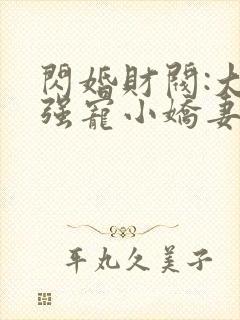 閃婚財閥:大
強寵小嬌妻
平丸久美子